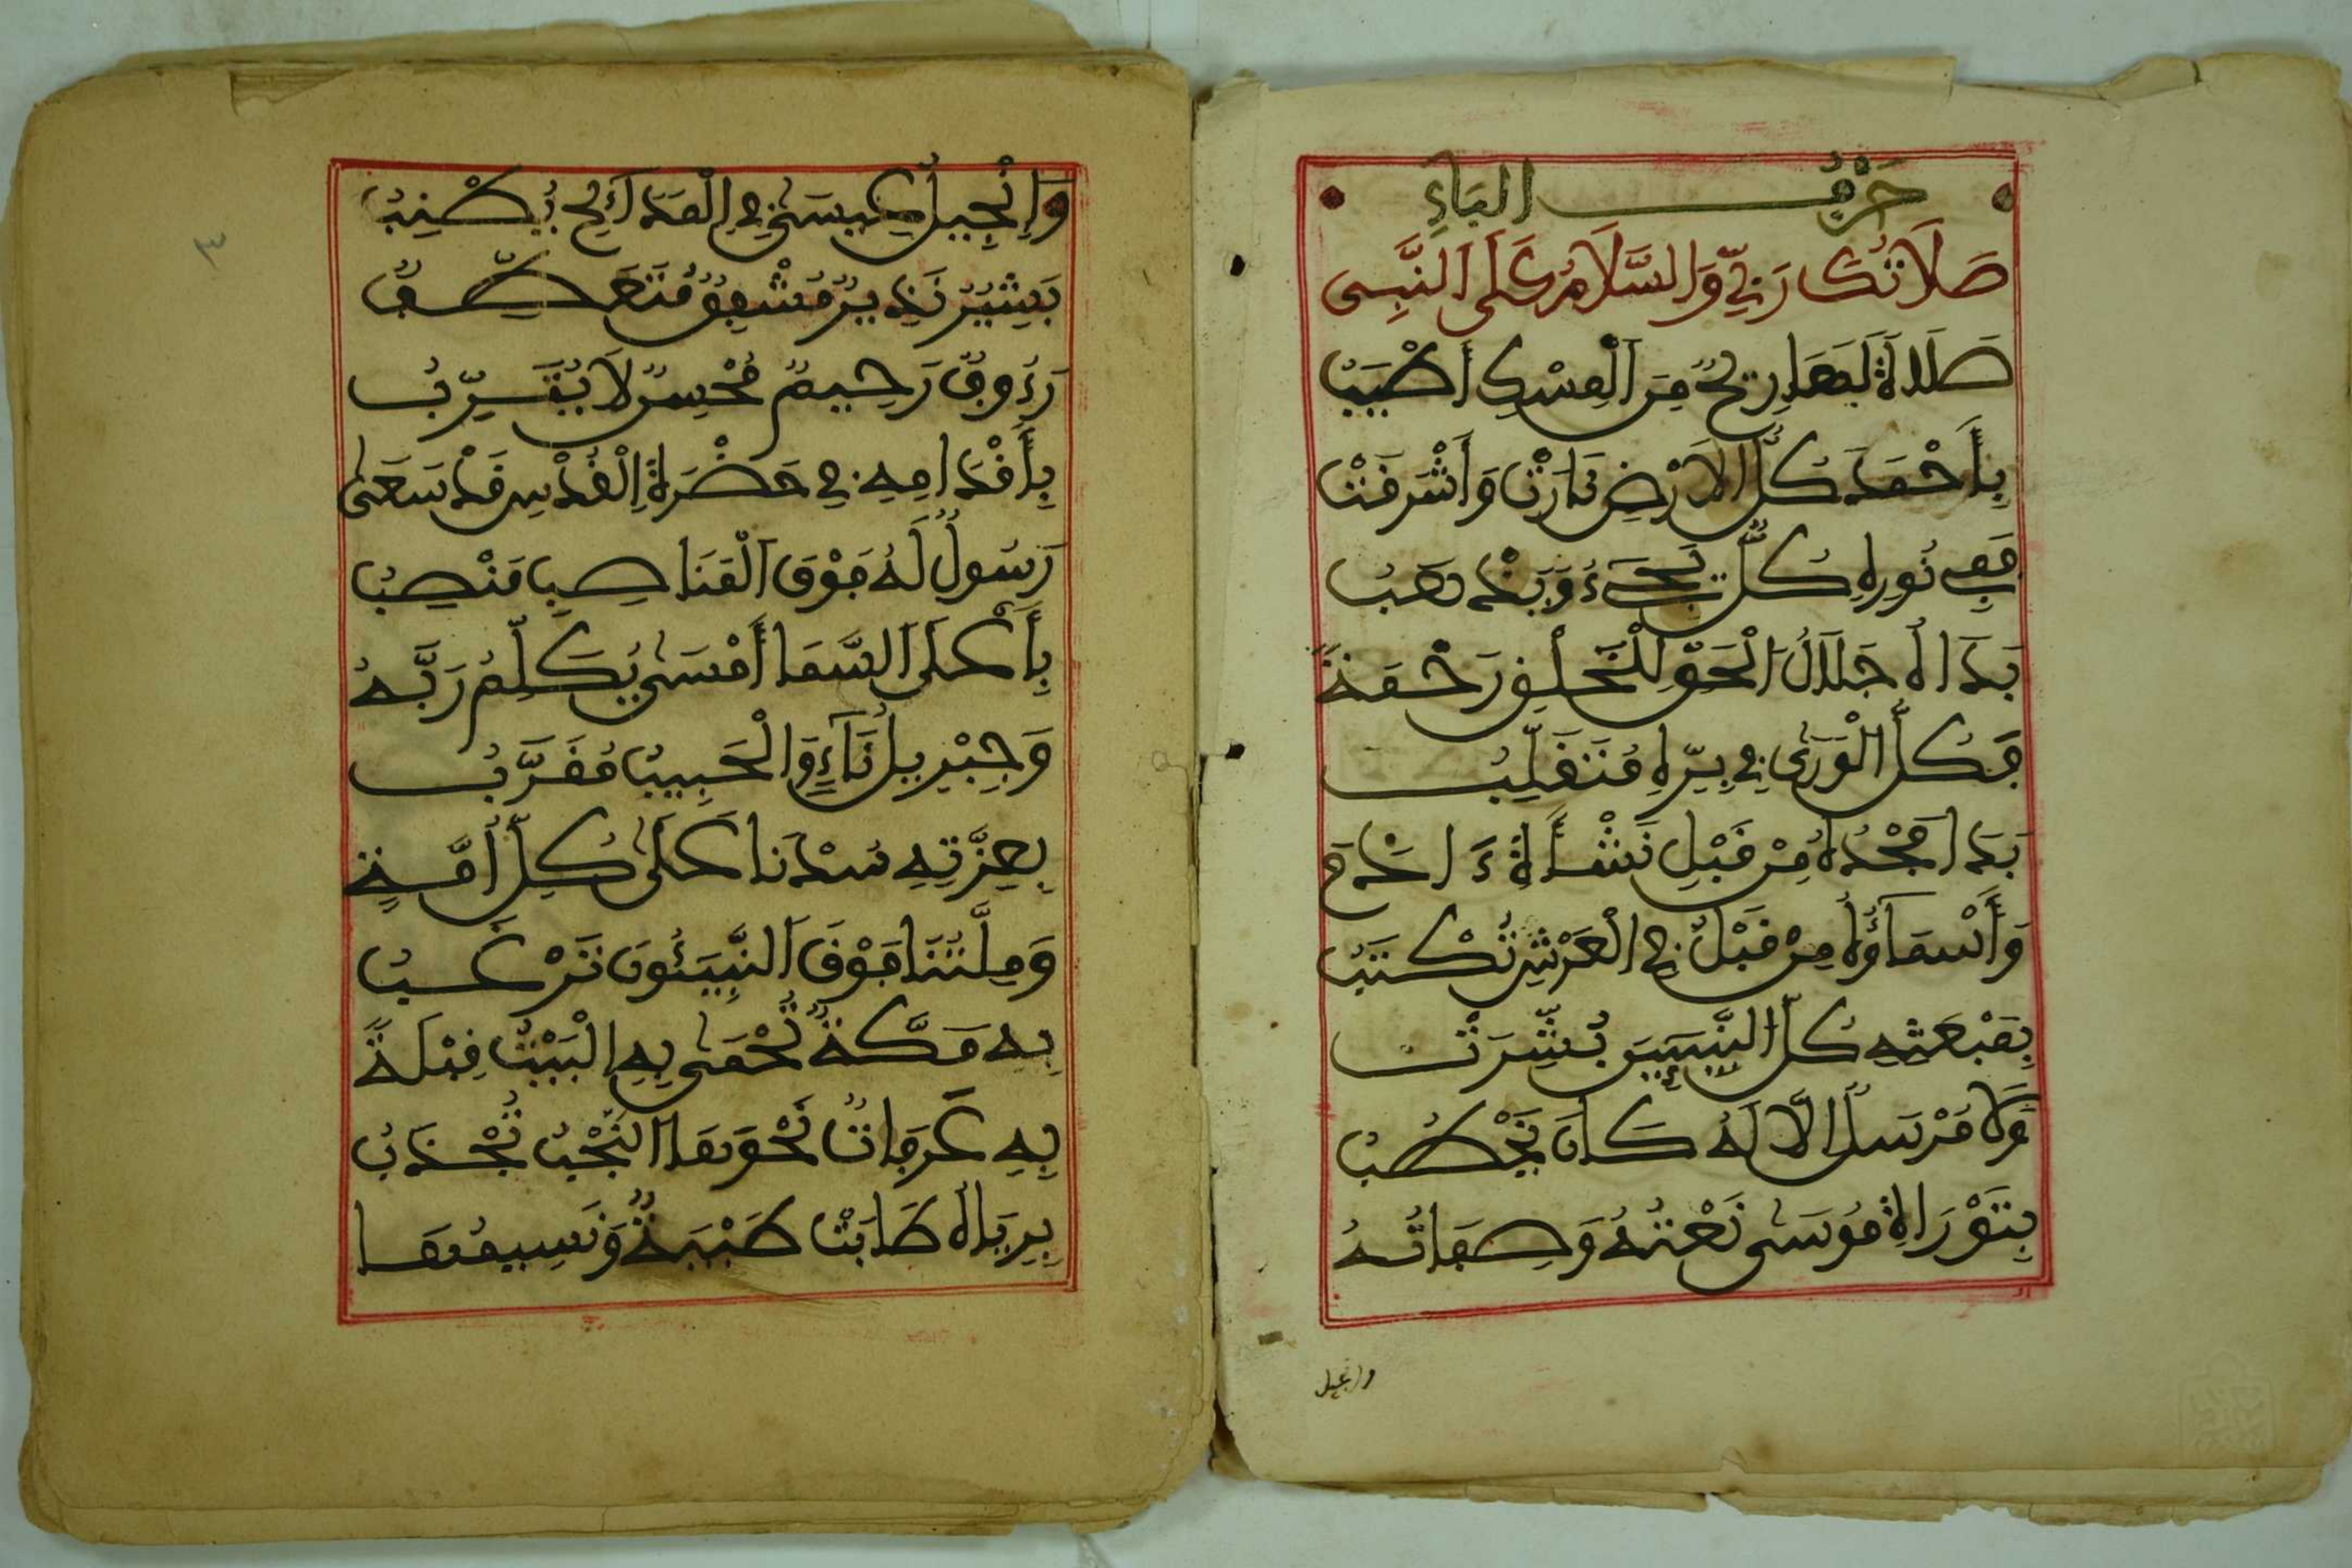 حَرْفُ الْبَاءِ
صَلَاتُكَ رَبِّي وَالسَّلَامُ عَلَى النَّبِي
صَلَاةً لَهَا رِيحٌ مِنَ الْمِسْكِ أَطْيَبُ
بِأَحْمَدَ كُلُّ الْأَرْضِ نَارَتْ وَأَشْرَقَتْ
فَفِي نُورِهِ كُلٌّ يَجِيءُ وَيَذْهَبُ
بَدَا لَهُ جَلَالُ الْحَقِّ لِلْخَلْقِ رَحْمَةً
فَكُلُّ الْوَرَى فِي بِرِّهِ مُتَقَلِّبُ
بَدَا مَجْدُهُ مِنْ قَبْلِ نَشْأَةِ ءَادَمَ
وَأَسْمَاؤُهُ مِنْ قَبْلُ فِي الْعَرْشِ تُكْتَبُ
بِمَبْعَثِهِ كُلُّ النَّبِيِّينَ بُشِّرَتْ
وَلَا مُرْسَلٌ إِلَّا لَهُ كَانَ يَخْطُبُ
بِتَوْرَاةِ مُوسَى نَعْتُهُ وَصِفَاتُهُ
وانجيل
٣
وَإِنْجِيلُ عِيسَى فِي الْمَدَائِحِ يُطْنِبُ
بَشِيرٌ نَذِيرٌ مُشْفِقٌ مُتَعَطِّفٌ
رَءُوفٌ رَحِيمٌ مُحْسِنٌ لَا يُثَرِّبُ
بِأَقْدَامِهِ فِي حَضْرَةِ الْقُدْسِ قَدْ سَعَى
رَسُولٌ لَهُ فَوْقَ الْمَنَاصِبِ مَنْصِبُ
بِأَعْلَى السَّمَا أَمْسَى يُكَلِّمُ رَبَّهُ
وَجِبْرِيلُ نَاءٍ وَالْحَبِيبُ مُقَرَّبُ
بِعِزَّتِهِ سُدْنَا عَلَى كُلِّ أُمَّةٍ
وَمِلَّتُنَا فَوْقَ النَّبِيئُونَ تَرْغَبُ
بِهِ مَكَّةٌ تُحْمَى بِهِ الْبَيْتُ قِبْلَةً
بِهِ عَرَفَاتٌ نَحْوَهَا النُّجْبُ تُجْذَبُ
بِرِيَّاهُ طَابَتْ طَيْبَةٌ وَنَسِيمُهَا